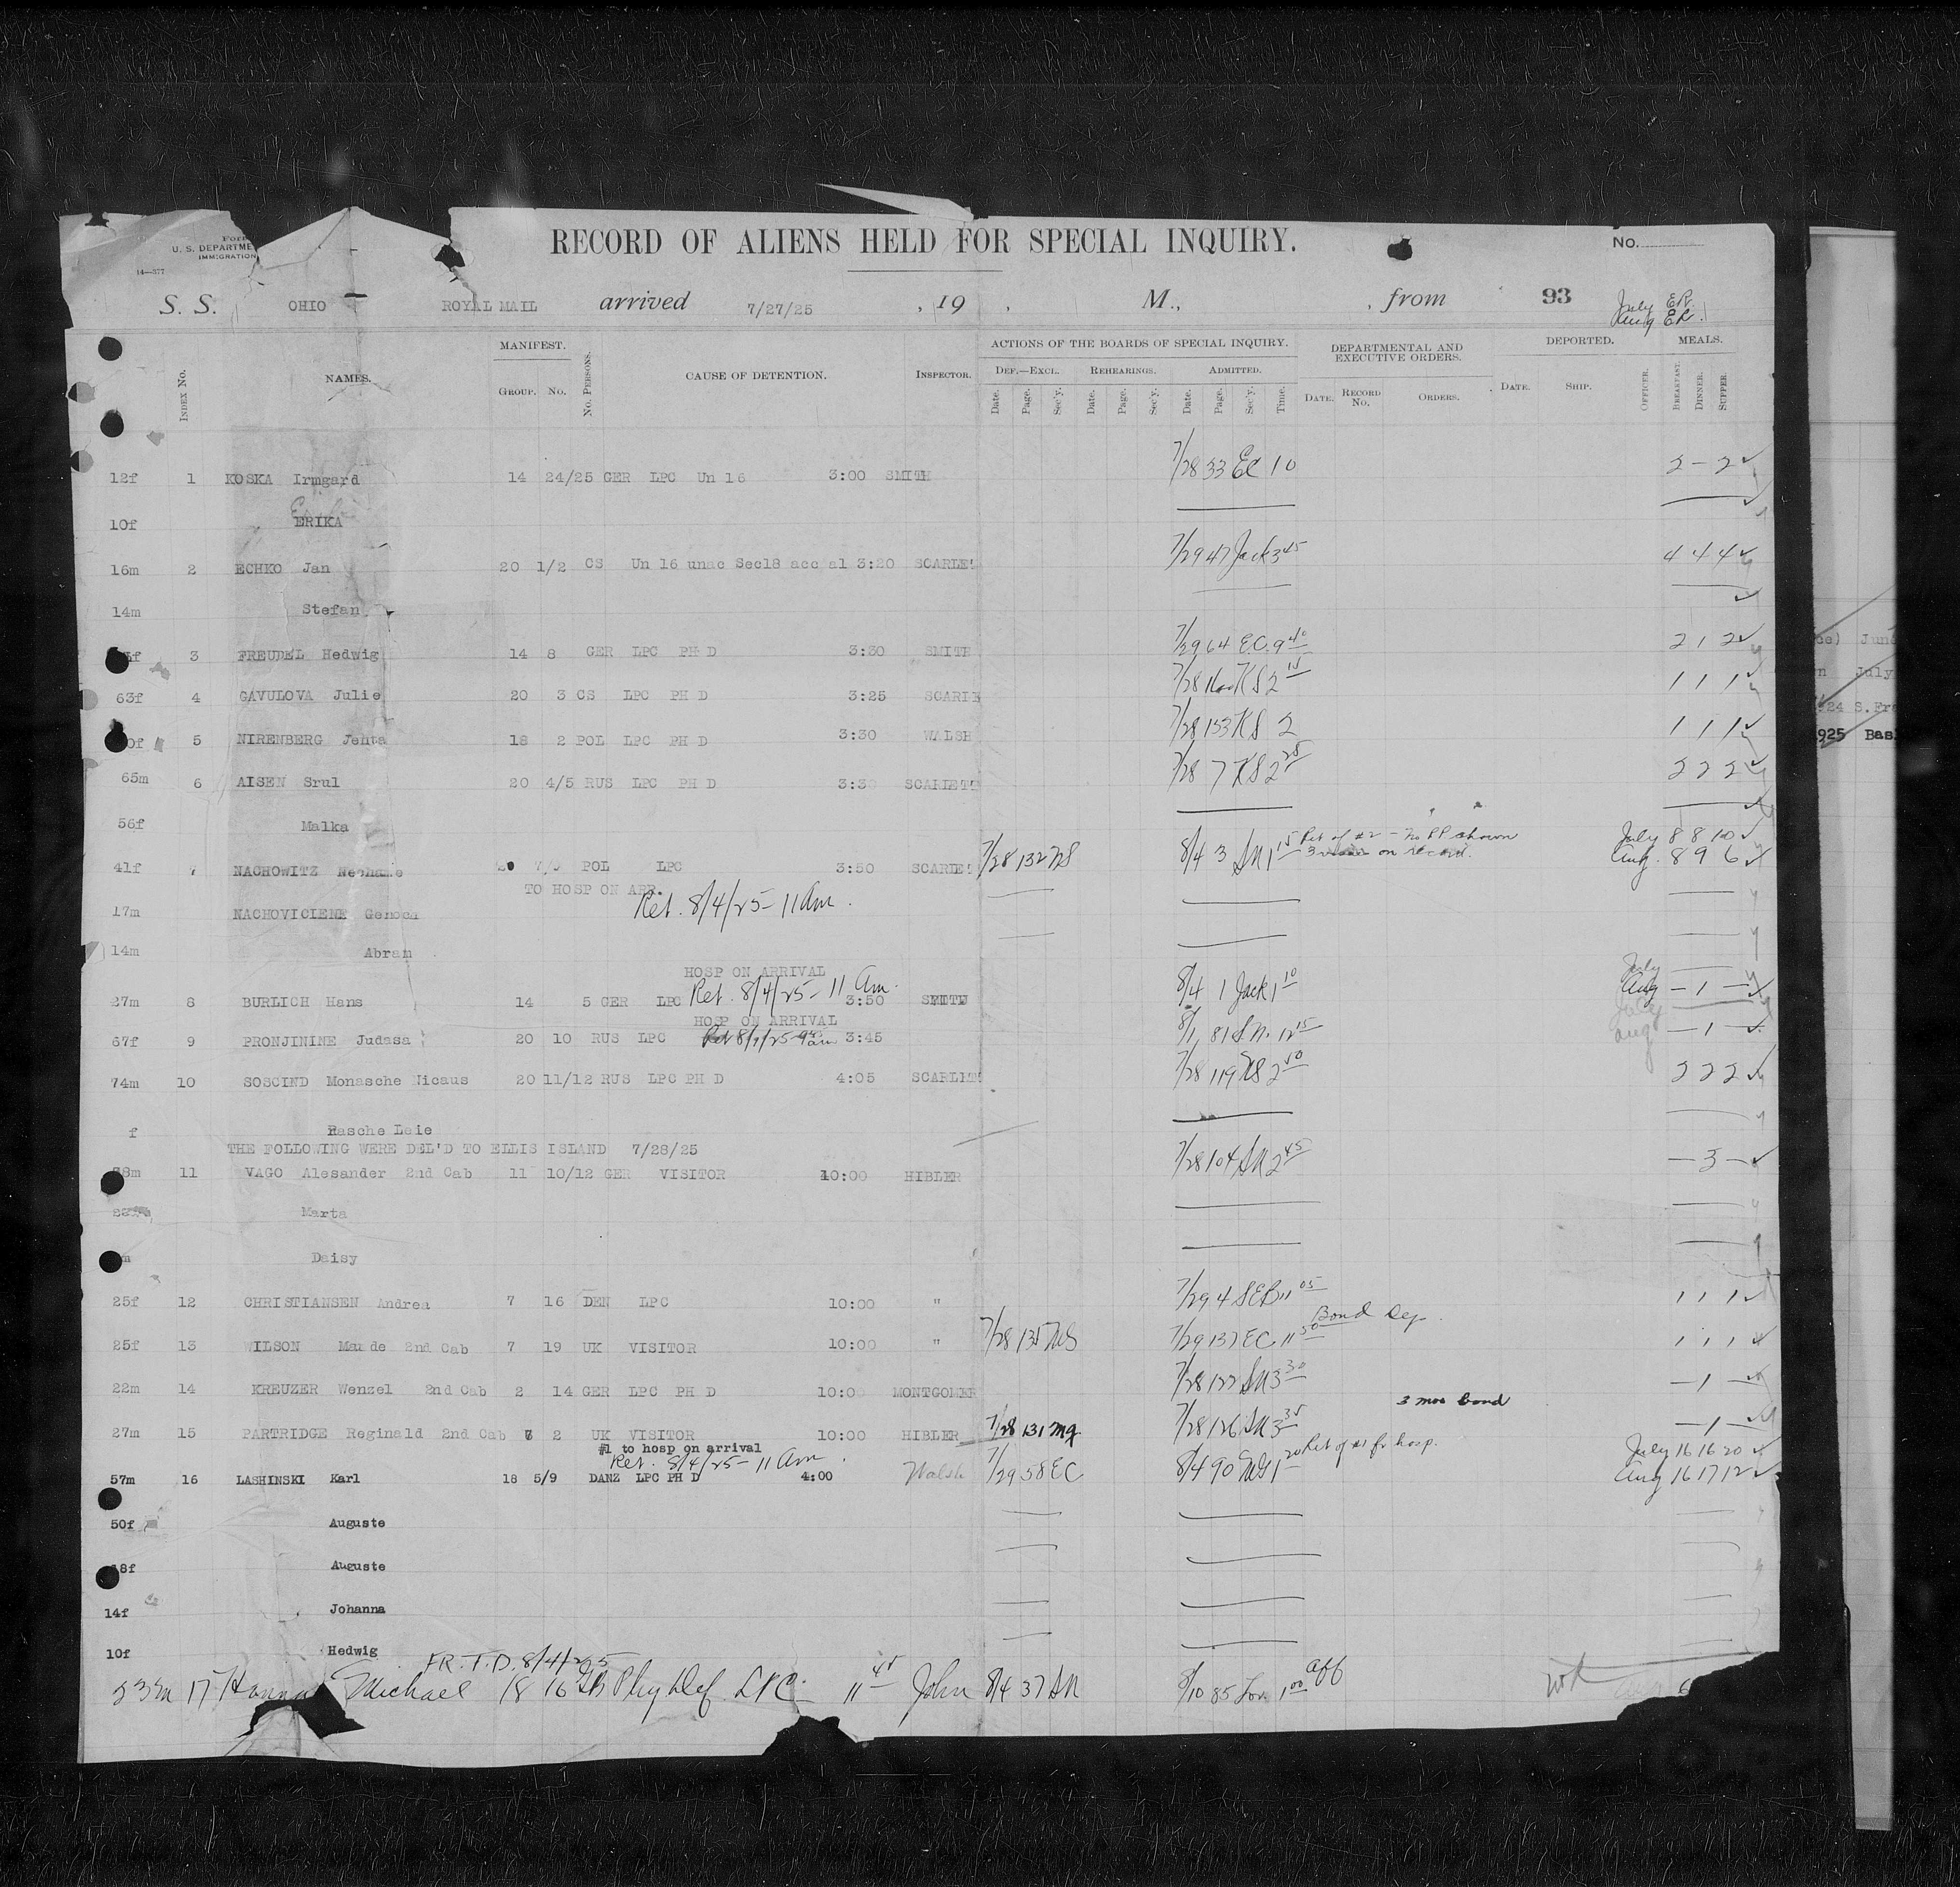 U. S. DEPARTME
IMMIGRATION
14—577
RECORD OF ALIENS HELD FOR SPECIAL INQUIRY.
No.
S. S. OHIO ROYAL MAIL arrived 7/27/25 , 19 , M., , from 93
July ER.
Aug ER.
INDEX No. NAMES. MANIFEST. GROUP. No. No. PERSONS. CAUSE OF DETENTION. INSPECTOR. ACTIONS OF THE BOARDS OF SPECIAL INQUIRY. DEF.—EXCL. Date. Page. Sec'y. REHEARINGS. Date. Page. Sec'y. ADMITTED. Date. Page. Sec'y. Time. DEPARTMENTAL AND EXECUTIVE ORDERS. DATE. RECORD No. ORDERS. DEPORTED. DATE. SHIP. OFFICER. MEALS. BREAKFAST. DINNER. SUPPER.
12f 1 KOSKA Irmgard 14 24/25 GER LPC Un 16 3:00 SMITH 7/28 33 EC 10 2 - 2
10f ERIKA
16m 2 ECHKO Jan 20 1/2 CS Un 16 unac Sec18 acc al 3:20 SCARLET 7/29 47 Jack 3 45 4 4 4
14m Stefan
f 3 FREUDEL Hedwig 14 8 GER LPC PH D 3:30 SMITH 7/29 64 E.C. 9 40 2 1 2
63f 4 GAVULOVA Julie 20 3 CS LPC PH D 3:25 SCARLE 7/28 KS 2 15 1 1 1
0f 5 NIRENBERG Jenta 18 2 POL LPC PH D 3:30 WALSH 7/28 153 KS 2 1 1 1
65m 6 AISEN Srul 20 4/5 RUS LPC PH D 3:30 SCARLETT 7/28 7 KS 2 25 2 2 2
56f Malka
41f 7 NACHOWITZ POL LPC 3:50 SCARLET 7/28 132 8/4 3 SN 1 15 Ret of #2 - No PP shown July 8 8 10
3 on record. Aug. 8 9 6
TO HOSP ON ARR.
Ret. 8/4/25 - 11 am.
17m NACHOVICIENE Genoch
14m Abram
HOSP ON ARRIVAL
Ret. 8/4/25 - 11 am.
27m 8 BURLICH Hans 14 5 GER LPC 3:50 8/4 1 Jack 1 10 July
Aug - 1 -
HOSP ON ARRIVAL
67f 9 PRONJININE Judasa 20 10 RUS LPC 3:45 8/1 81 S.N. 12 15 Aug - 1 -
74m 10 SOSCIND Monasche Nicaus 20 11/12 RUS LPC PH D 4:05 SCARLETT 7/28 119 KS 2 50 2 2 2
f Rasche Leie
THE FOLLOWING WERE DEL'D TO ELLIS ISLAND 7/28/25
38m 11 VAGO Alesander 2nd Cab 11 10/12 GER VISITOR 10:00 HIBLER 7/28 104 SN 2 45 - 3 -
Marta
Daisy
25f 12 CHRISTIANSEN Andrea 7 16 DEN LPC 10:00 " 7/29 4 SEB 11 05 1 1 1
Bond Dep.
25f 13 WILSON Maude 2nd Cab 7 19 UK VISITOR 10:00 " 7/28 135 7/29 137 EC 11 50 1 1 1
22m 14 KREUZER Wenzel 2nd Cab 2 14 GER LPC PH D 10:00 MONTGOMER 7/28 122 SN 3 30 - 1 -
3 mos bond
27m 15 PARTRIDGE Reginald 2nd Cab 6 2 UK VISITOR 10:00 HIBLER 7/28 131 mg 7/28 126 SN 3 35 - 1 -
#1 to hosp on arrival
Ret. 8/4/25 - 11 am.
57m 16 LASHINSKI Karl 18 5/9 DANZ LPC PH D 4:00 Walsh 7/29 58 EC 8/4 90 1 20 Ret of #1 fr hosp. July 16 16 20
Aug 16 17 12
50f Auguste
18f Auguste
14f Johanna
10f Hedwig
FR. T.D. 8/4/25
23m 17 Hanna Michael 18 16 GB Phy Def LPC 11 45 John 8/4 37 SN 8/10 85 1 00 aff
July
1925 Bas